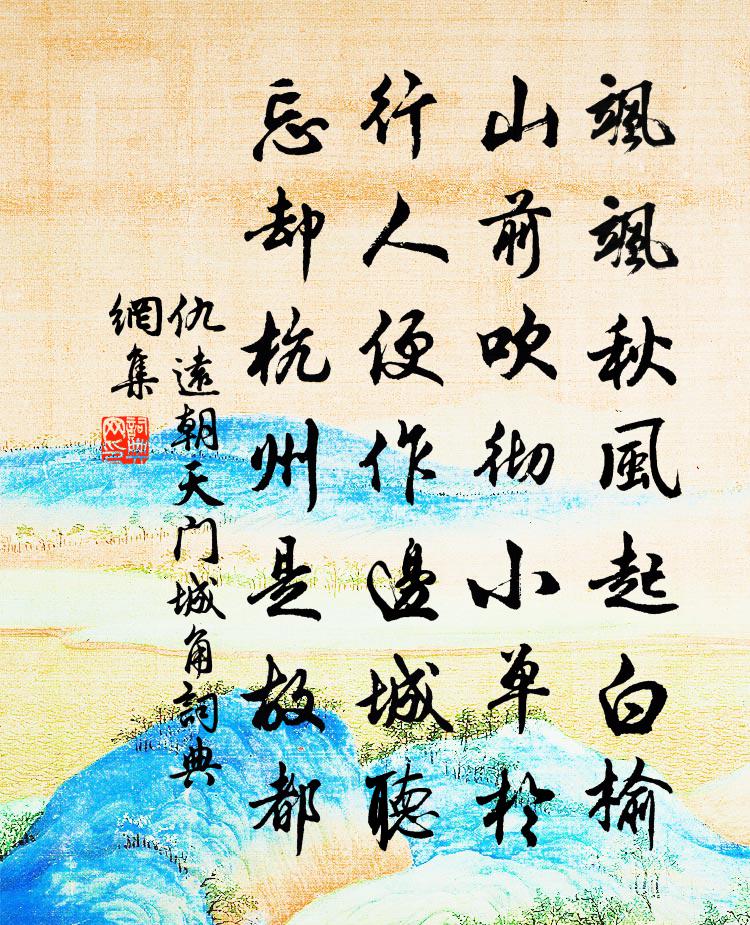 颯颯秋風起白榆
山前吹彻小单於
行人便作邊城聽
忘却杭州是故都
仇遠朝天门城角詞典
網集